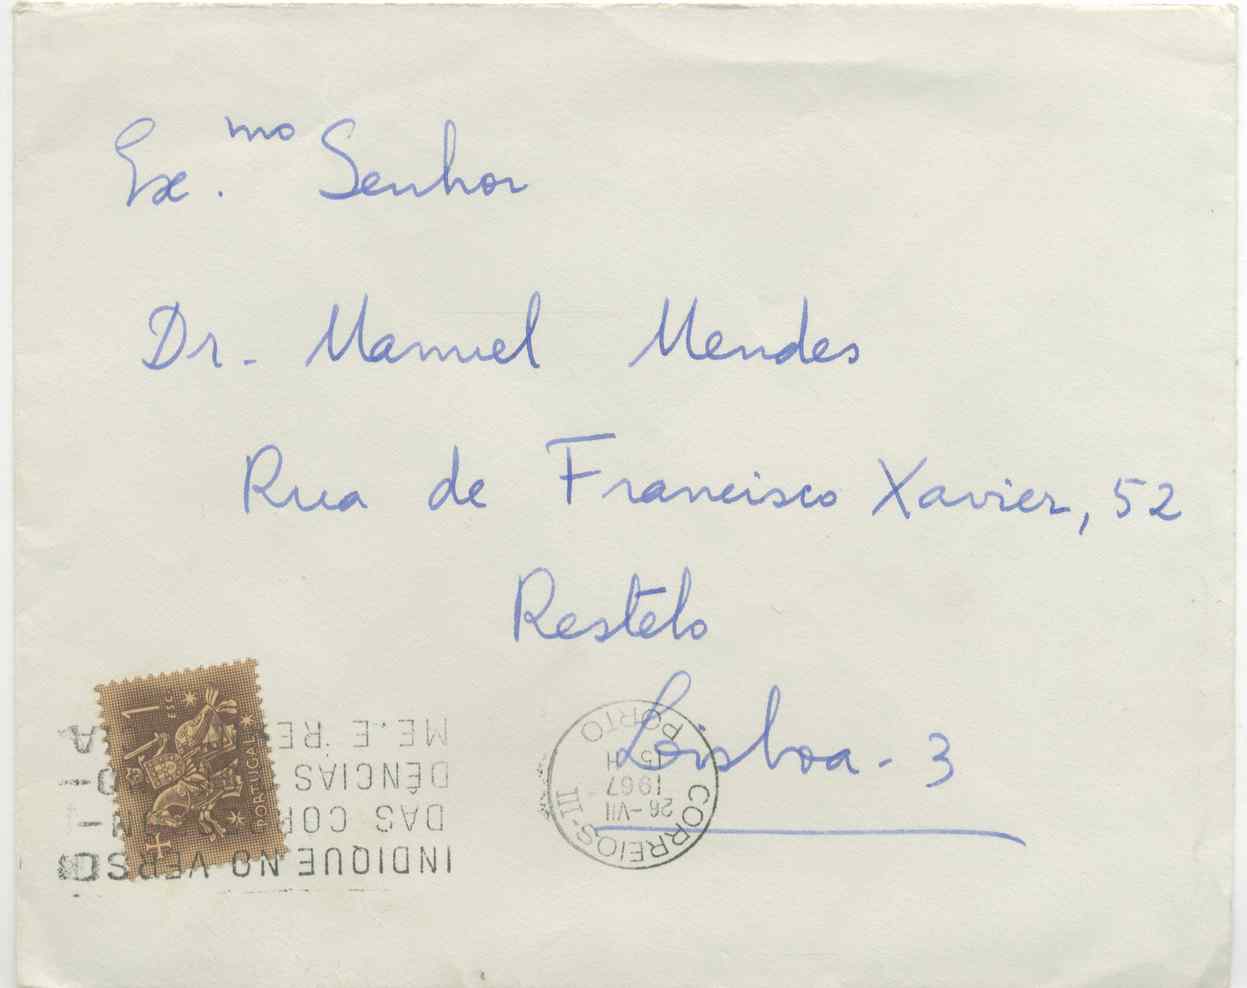 Ex.mo Senhor
Dr. Manuel Mendes
Rua de Francisco Xavier, 52
Restelo
Lisboa - 3
1 ESC.
PORTUGAL
INDIQUE NO VERSO
DAS
DÊNCIAS
ME. E
CORREIOS-III
26-VII
1967
PORTO